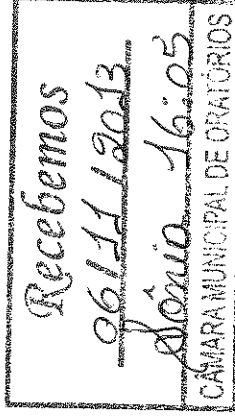 Recebemos
06/11/2013
Sônia 16:05
CÂMARA MUNICIPAL DE ORATÓRIOS